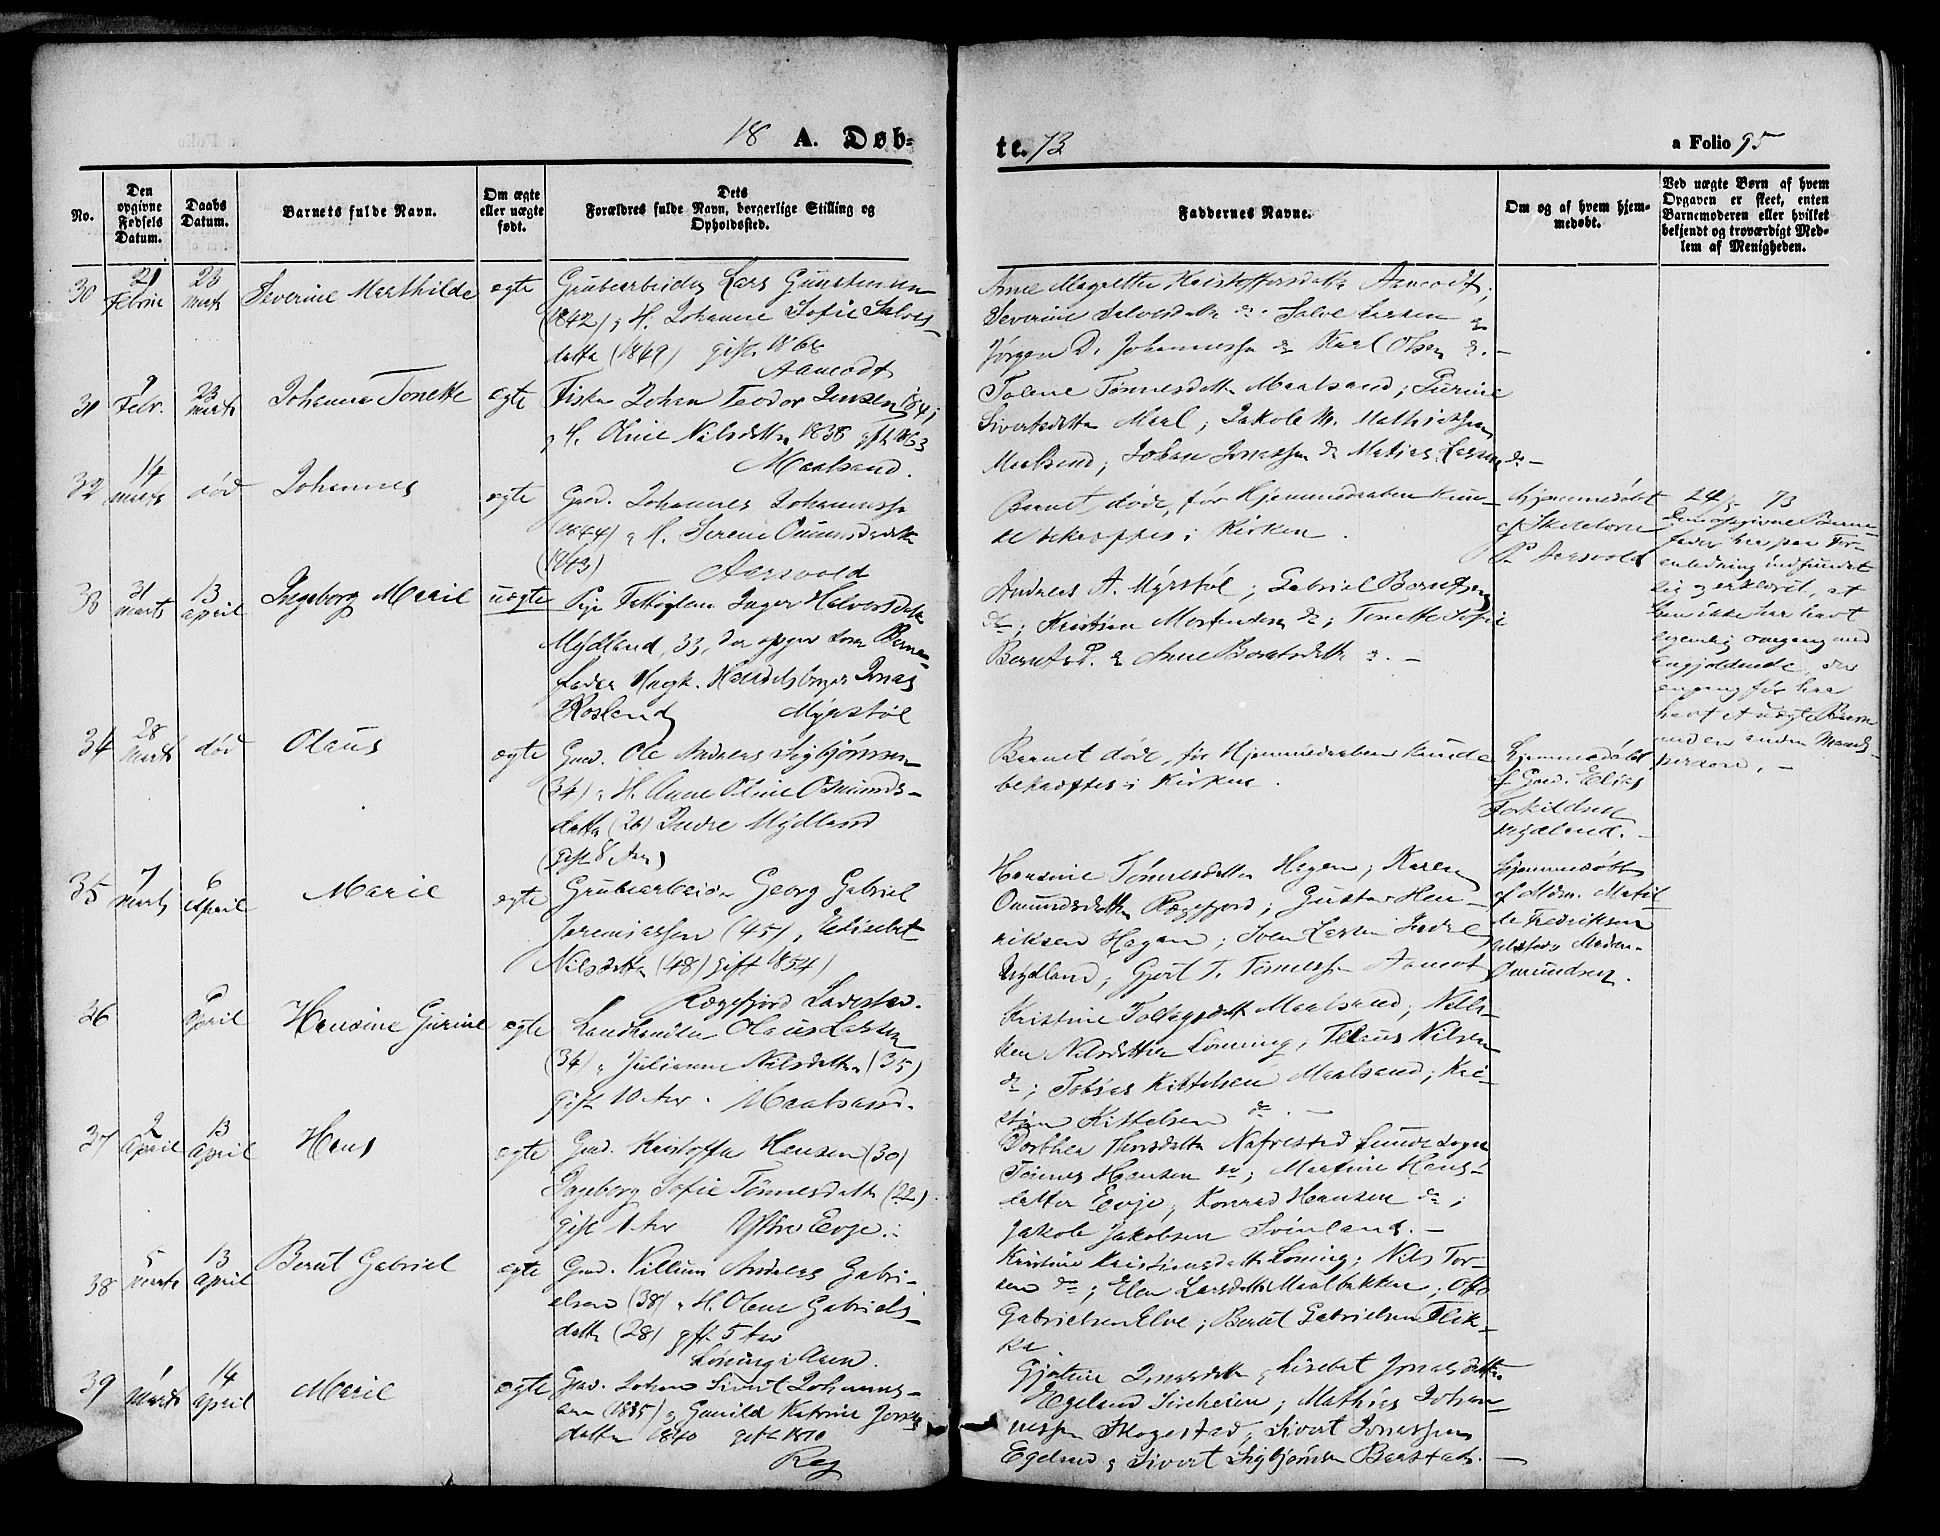 18 A. Døb-
te. 73
a Folio 95
No.
Den opgivne Fødsels Datum.
Daabs Datum.
Barnets fulde Navn.
Om ægte eller uægte født.
Dets
Forældres fulde Navn, borgerlige Stilling og
Opholdssted.
Faddernes Navne.
Om og af hvem hjem-
medøbt.
Ved uægte Børn af hvem
Opgaven er skeet, enten
Barnemoderen eller hvilket
bekjendt og troværdigt Med-
lem af Menigheden.
30
21 Febrər
23 Marts
Severine Marthilde
ægte
Grubearbeider Lars Gunstensen
(1842) & H. Johanne Sofie Salves-
datter (1849) gift 1868
Aamodt
Anne Magrethe Kristoffersdatter Aamodt;
Severine Salvesdatter do. Salve Larsen
Jørgen D. Johannessen do & Karl Olsen do. —
31
9 Febr.
23 Marts
Johanna Tonette
ægte
Fisker Johan Teodor Jensen 1841
& H. Oline Nilsdatter 1838 gift 1863
Maalsand.
Tolene Tønnesdatter Maalsand; Gurine
Sivertsdatter Mael; Jakob M. Mathiassen
Maalsand; Johan Jonassen do & Matias Larsen do —
32
14 Marts
død
Johannes
ægte
Gaad. Johannes Johannessen
(1844) & H. Serene Omundsdatter
(1843) Aarsvold
Barnet døde, før Hjemmedaaben kun-
de bekræftes i Kirken.
hjemmedøbt
af Skolelærer
P. Aarsvold
33
31 Marts
13 April
Ingeborg Marie
uægte
Pige Fattiglem Inger Halvorsdatter
Mydland, 33, der opgav som Barne-
fader Ungk. Handelsborger Jonas
Rosland Myrstøl
Andreas A. Myrstøl; Gabriel Berntsen
do; Kristian Mortensen do; Tonette Sofie
Bernts D. & Anne Berntsdatter do. —
24/5 73
Den opgivne Barne-
fader har paa For-
anledning indfundet
sig og erklæret, at
han ikke har havt
legemlig omgang med
Angjældende, der
engang før har
havt et uægte Barn
med en anden Mands-
person. —
34
28 Marts
død
Olaus
ægte
Gaad. Ole Andreas Sigbjørnsen
(34) & H. Anne Oline Osmunds-
datter (26) Indre Mydland
(gift 8 Aar)
Barnet døde, før Hjemmedaaben kunde
bekræftes i Kirken.
hjemmedøbt
af Gaad. Elias
Torkildsen
Mydland. —
35
7 Marts
6 April
Marie
ægte
Grubearbeider Georg Gabriel
Jeremiassen (45) & Elisabet
Nilsdatter (48) gift 1854)
Rægefjord Ladested.
Hansine Tønnesdatter Hagen; Karen
Omundsdatter Rægefjord; Gustav Hen-
riksen Hagen; Sven Larsen Indre
Mydland; Gjert T. Tønnessen Aamot
hjemmedøbt
af Mdm. Matil-
de Fredriksen
Omundsen.
36
April
Hansine Gurine
ægte
Landhandler Olaus Larsen
(34) & Juliane Nilsdatter (35)
gift 10 Aar. Maalsand.
Kristine Maalsand; Nils-
ken Nilsdatter Løning; Nilsen
do; Tobias Kittelsen Maalsand; Kri-
stian Kittelsen do. —
37
2 April
13 April
Hans
ægte
Gaad. Kristoffer Hansen (30)
Ingeborg Sofie Tønnesdatter (22)
gift 1 Aar Ystre Evje.
Dorthea Hansdatter Nafrestad Lunde Sogn
Tønnes Hansen do; Martine Hans-
datter Evje; Konrad Hansen do;
Jakob Jakobsen Svinland. —
38
5 Marts
13 April
Berút Gabriel
ægte
Gaad. Villum Andreas Gabri-
elsen (38) & H. Olene Gabriels-
datter (28) gift 5 Aar
Løning i Aaen.
Kristine Kristiansdatter Løning; Nils Tor-
sen do; Elen Larsdatter Maalbakken; Otto
Gabrielsen Elve; Berút Gabrielsen Flik-
ke
39
1 Marts
14 April
Marie
ægte
Gaad. Johan Sivert Johannes-
sen (1835) & Gunild Katrine Jons-
datter 1840 gift 1870
Reg
Gjertine Jonasdatter & Lisebet Jonasdatter
Egeland Sirheien; Mathias Johan-
nessen Skogestad; Sivert Jonassen
Egeland & Sivert Sigbjørnsen Barstad. —